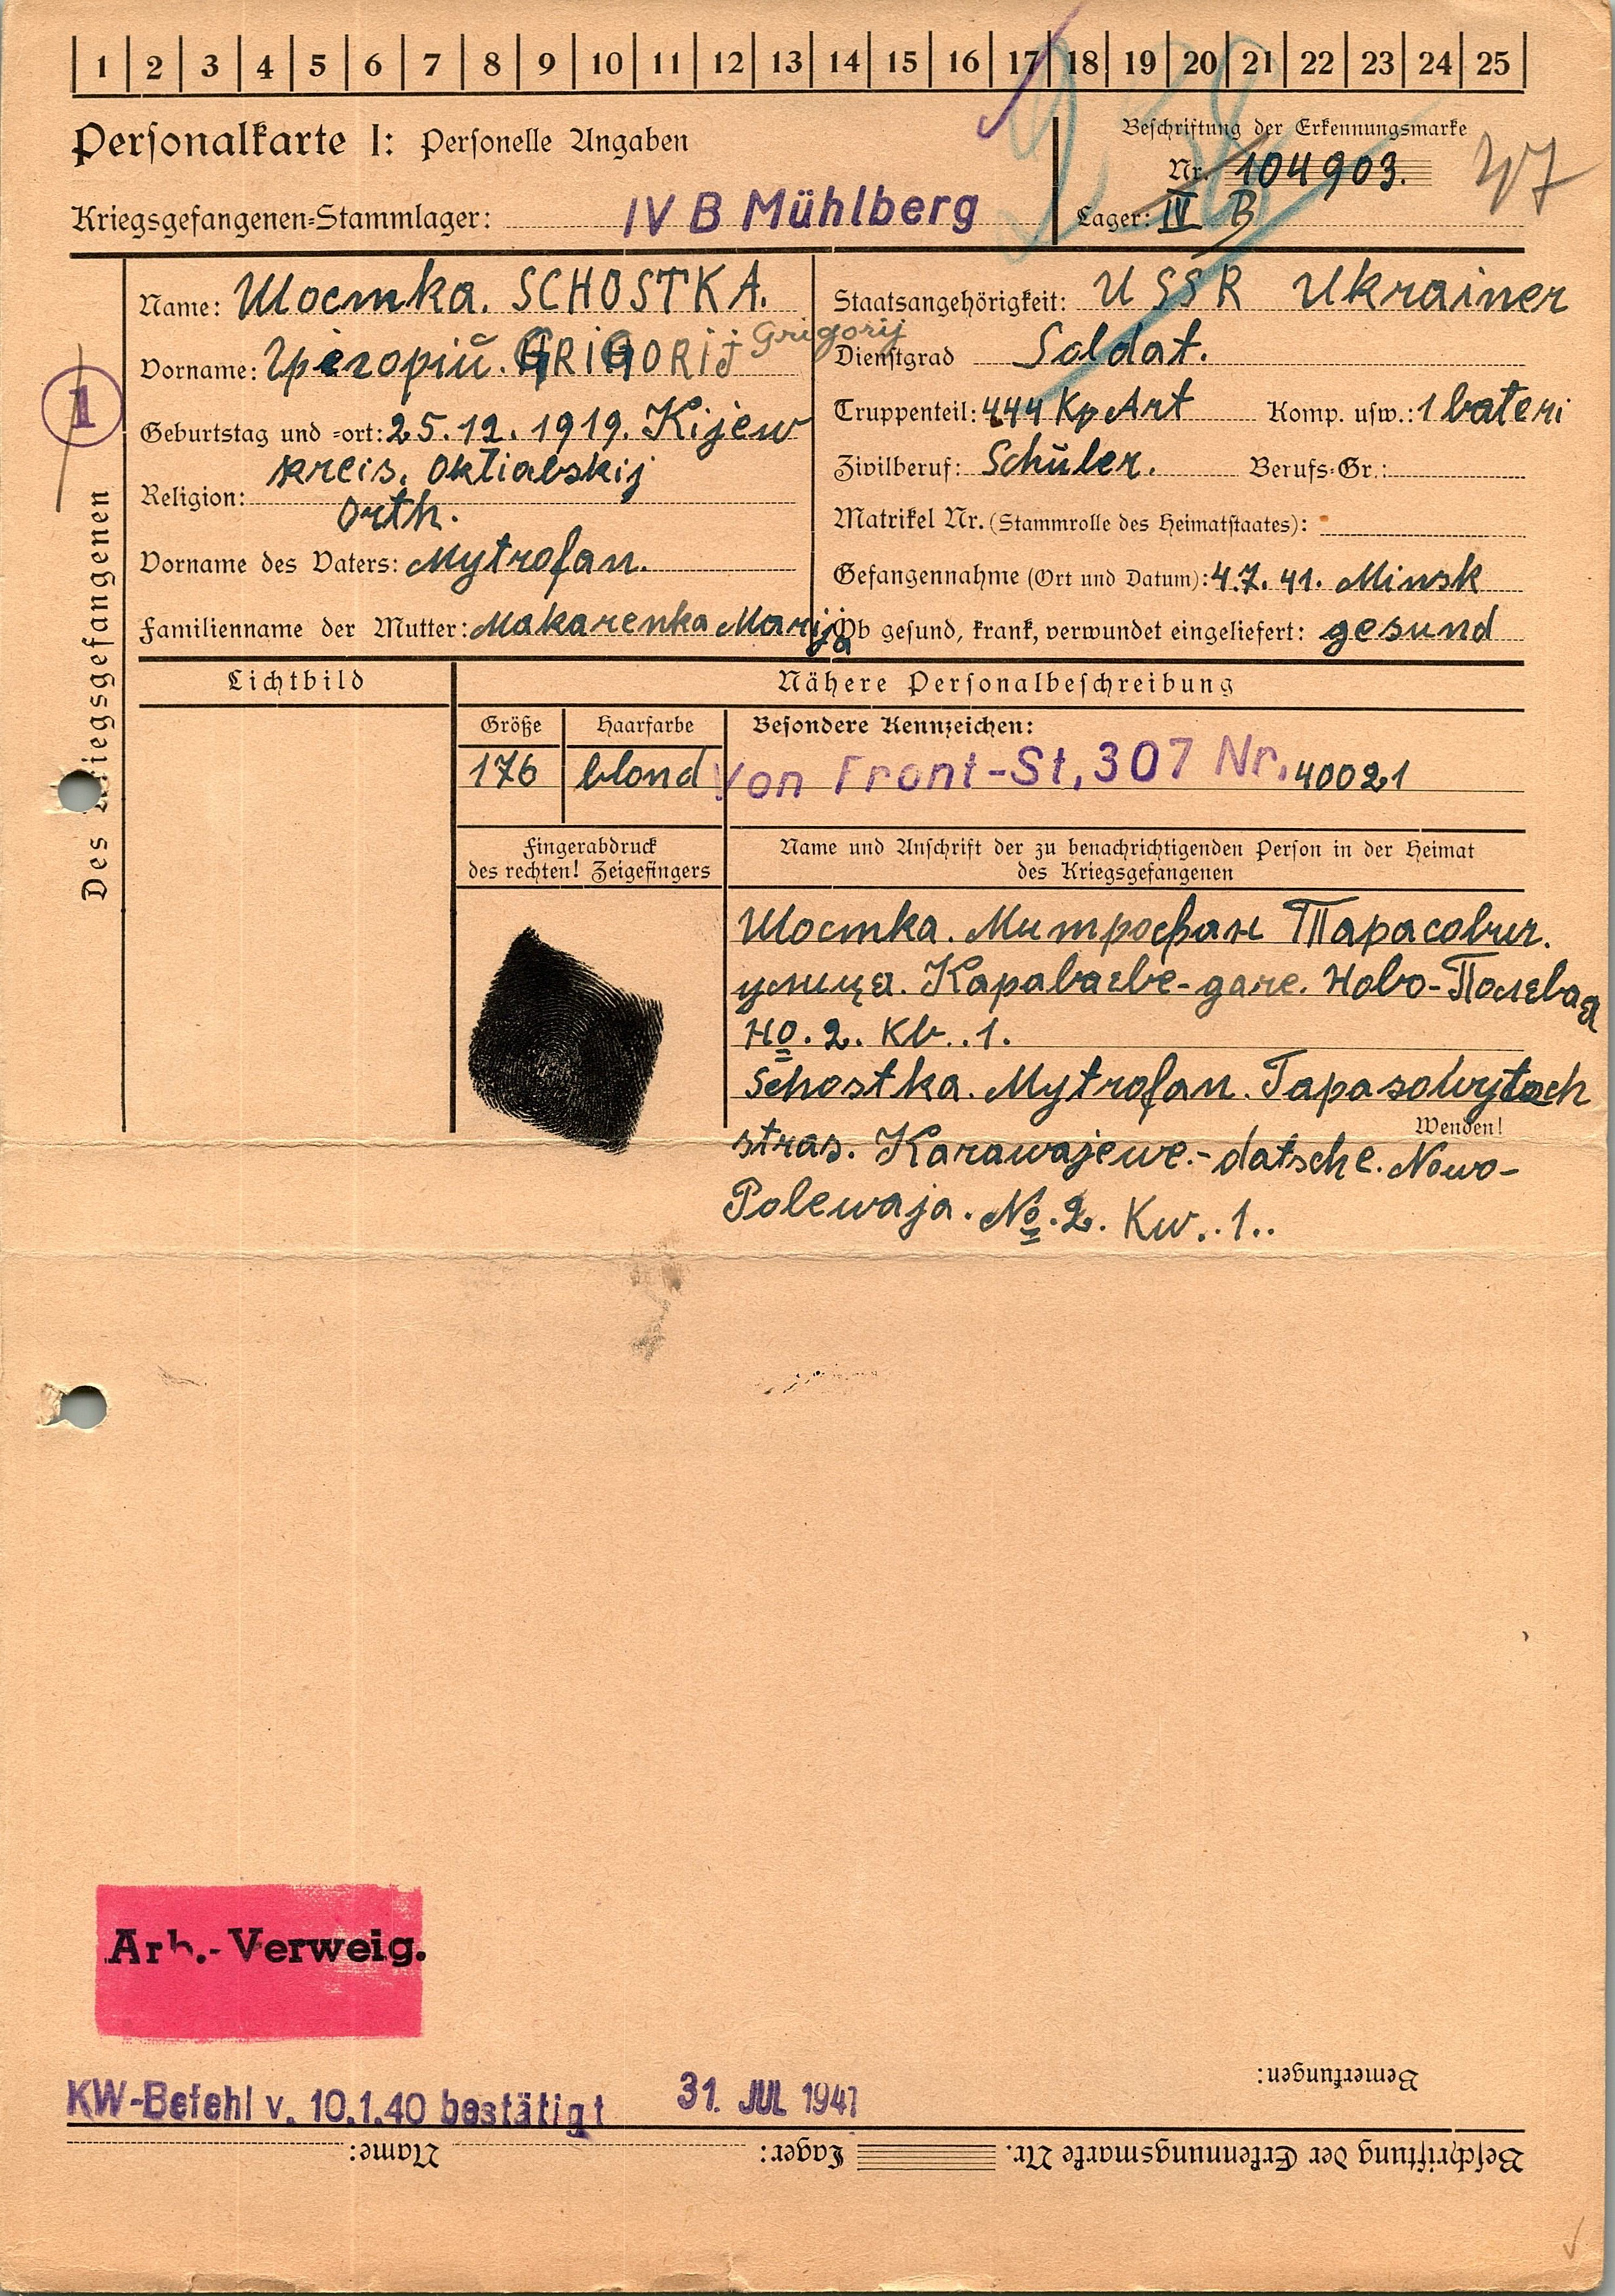 1 2 3 4 5 6 7 8 9 10 11 12 13 14 15 16 17 18 19 20 21 22 23 24 25
Personalkarte I: Personelle Angaben
Beschriftung der Erkennungsmarke
Nr. 104903.
47
Kriegsgefangenen-Stammlager: IV B Mühlberg
Lager: IV B
Des Kriegsgefangenen
1
Name: Шостка. SCHOSTKA.
Vorname: Григорій. GRIGORIJ Grigorij
Geburtstag und -ort: 25.12.1919. Kijew
kreis. Oktiabskij
Religion: Orth.
Vorname des Vaters: Mytrofan.
Familienname der Mutter: Makarenka Marija
Staatsangehörigkeit: USSR Ukrainer
Dienstgrad Soldat.
Truppenteil: 444 Kp Art Komp. usw.: 1 bateri
Zivilberuf: Schüler. Berufs-Gr.:
Matrikel Nr. (Stammrolle des Heimatstaates):
Gefangennahme (Ort und Datum): 4.7.41. Minsk
Ob gesund, krank, verwundet eingeliefert: gesund
Lichtbild
Nähere Personalbeschreibung
Größe
176
Haarfarbe
blond
Besondere Kennzeichen:
Von Front-St, 307 Nr. 40021
Fingerabdruck
des rechten! Zeigefingers
Name und Anschrift der zu benachrichtigenden Person in der Heimat
des Kriegsgefangenen
Шостка. Митрофан Тарасович.
улица. Караваеве-даче. Ново-Полевая
No. 2. Кв. .1.
Schostka. Mytrofan. Tapasowytsch
Wenden!
stras. Karawajewe.-datsche. Nowo-
Polewaja. No. 2. Kw. .1..
Arb.-Verweig.
KW-Befehl v. 10.1.40 bestätigt 31. JUL 1941
Bemerkungen:
Beschriftung der Erkennungsmarke Nr. Lager: Name: